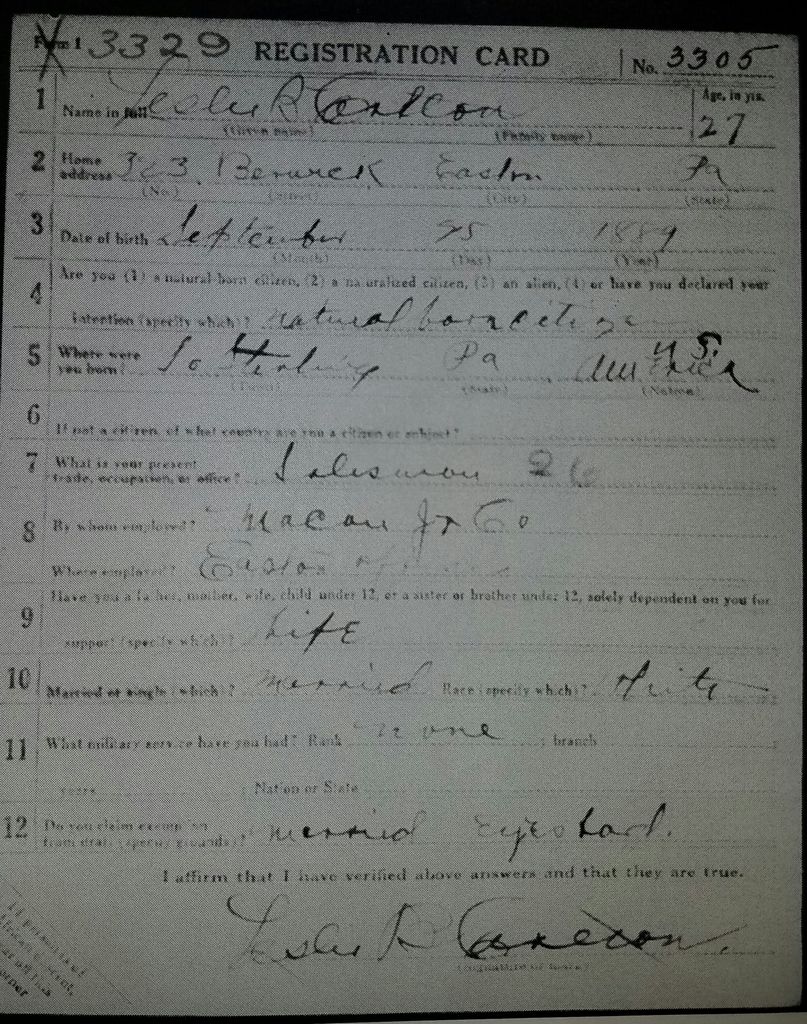 Form 1 3329 REGISTRATION CARD No. 3305
1 Name in full Leslie R Carlton Age, in yrs.
(Given name) (Family name) 27
2 Home address 323 Berwick Easton Pa
(No.) (Street) (City) (State)
3 Date of birth September 25 1889
(Month) (Day) (Year)
4 Are you (1) a natural born citizen, (2) a naturalized citizen, (3) an alien, (4) or have you declared your
intention (specify which)? natural born citizen
5 Where were you born? So Sterling Pa U.S. America
(Town) (State) (Nation)
6 If not a citizen, of what country are you a citizen or subject?
7 What is your present trade, occupation, or office? Salesman 26
8 By whom employed? Macan Jr Co
Where employed? Easton
9 Have you a father, mother, wife, child under 12, or a sister or brother under 12, solely dependent on you for
support (specify which)? Wife
10 Married or single (which)? Married Race (specify which)? White
11 What military service have you had? Rank none ; branch
years Nation or State
12 Do you claim exemption from draft (specify grounds)? married eyes bad.
I affirm that I have verified above answers and that they are true.
Leslie R Carlton
(Signature or mark)
If person is of
African descent,
corner